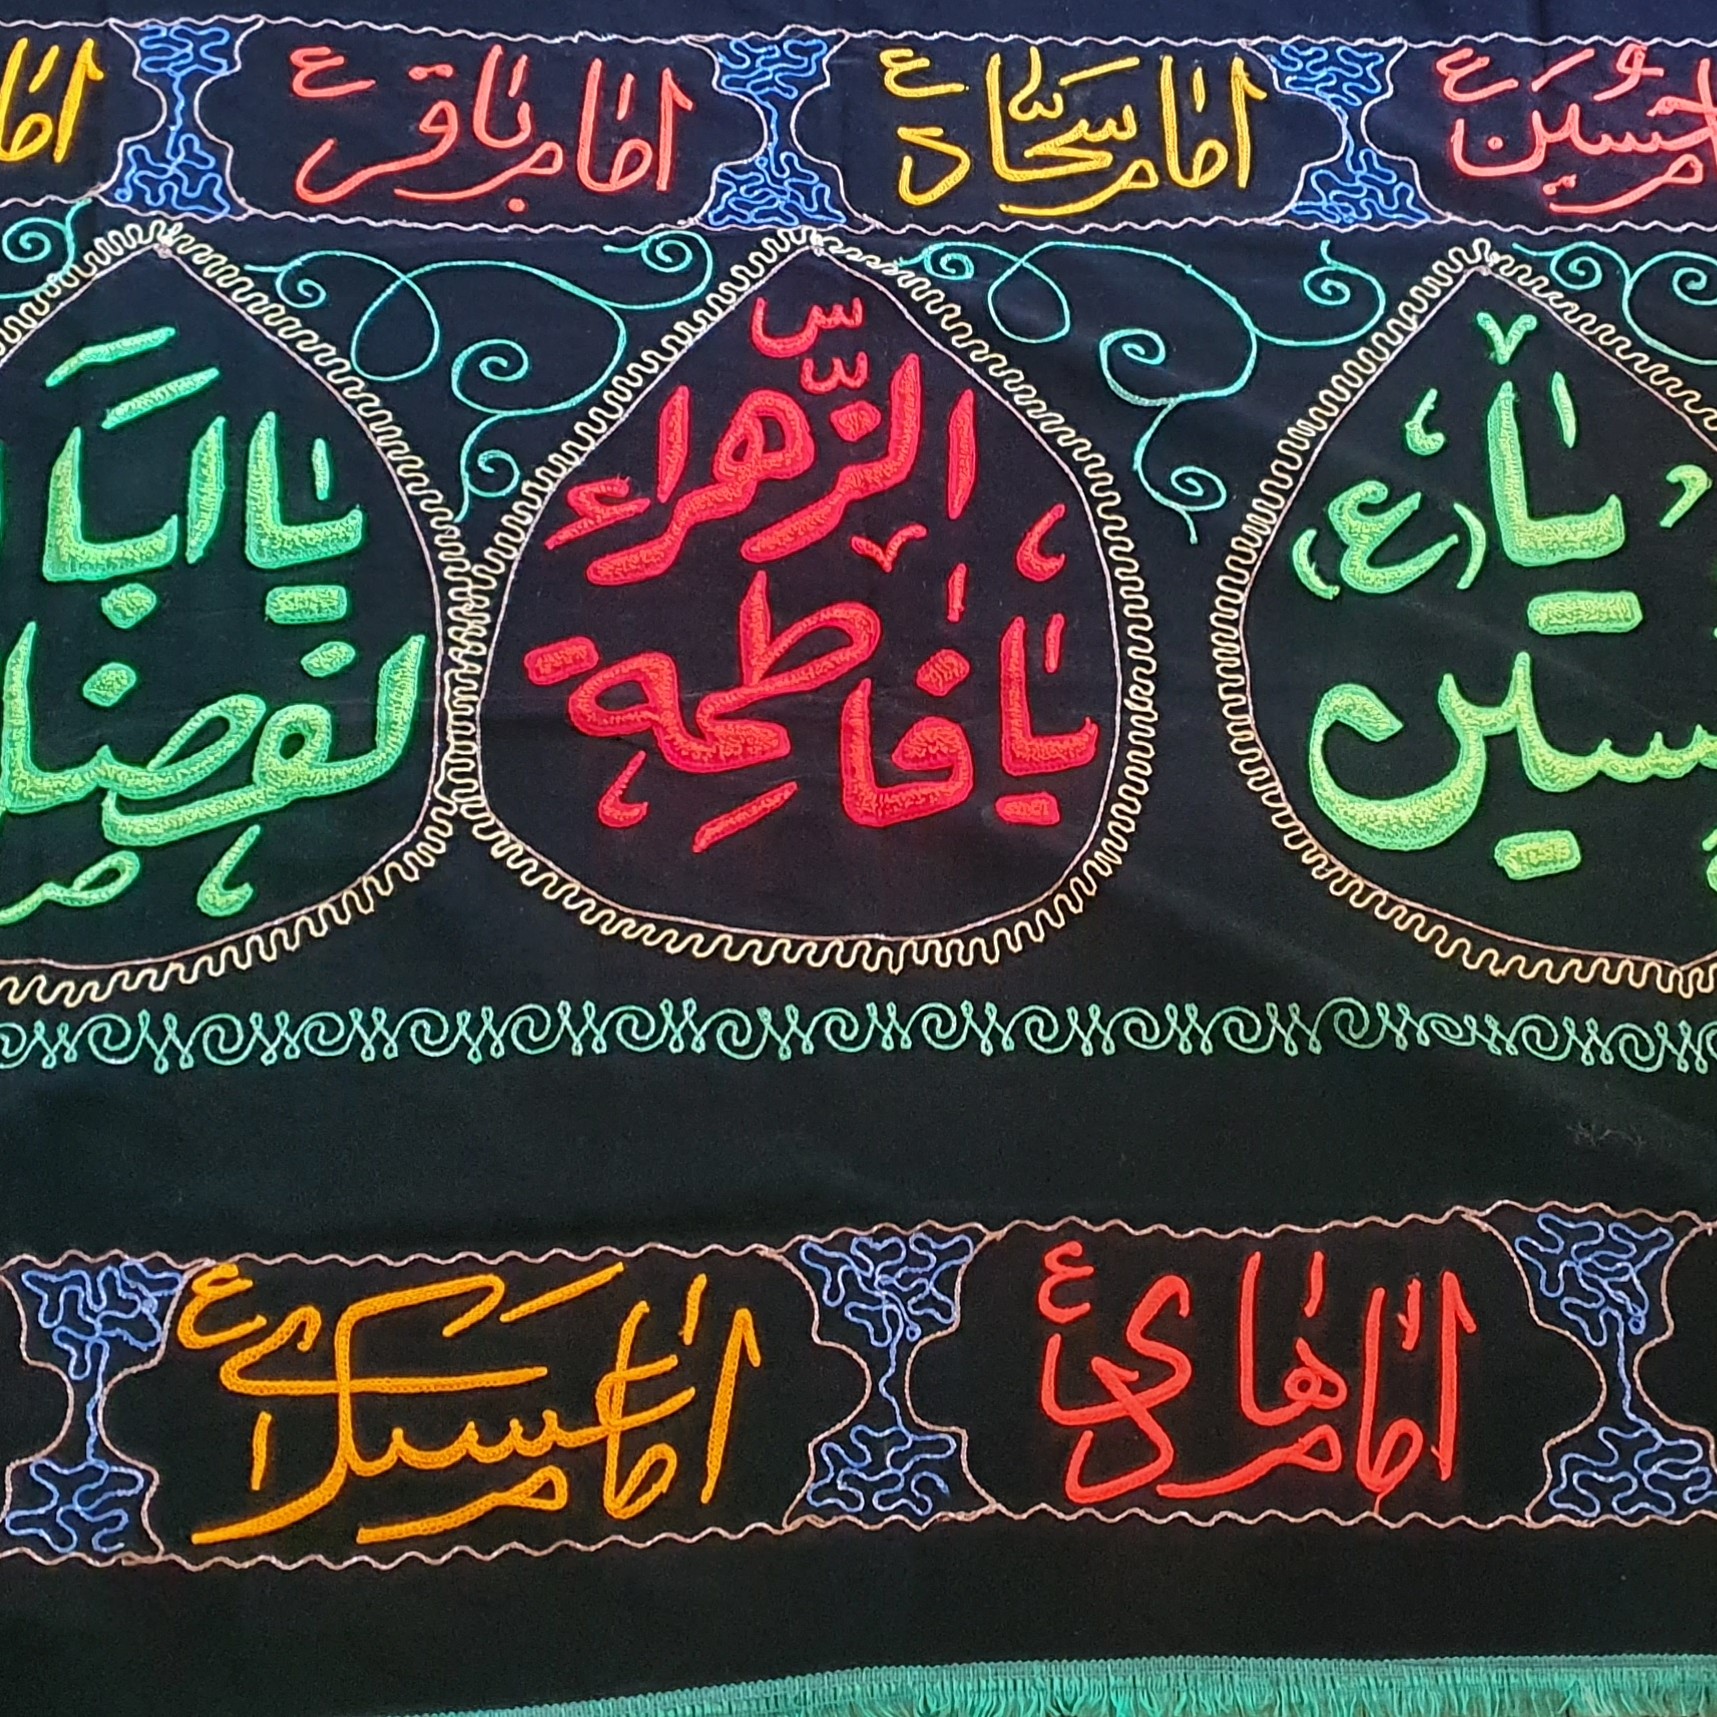 امام حسین ع
امام سجّاد ع
امام باقر ع
یا
حسین (ع)
یا فاطمة
الزّهراء س
یا اباً
لفضل
امام هادی ع
امام عسکری ع